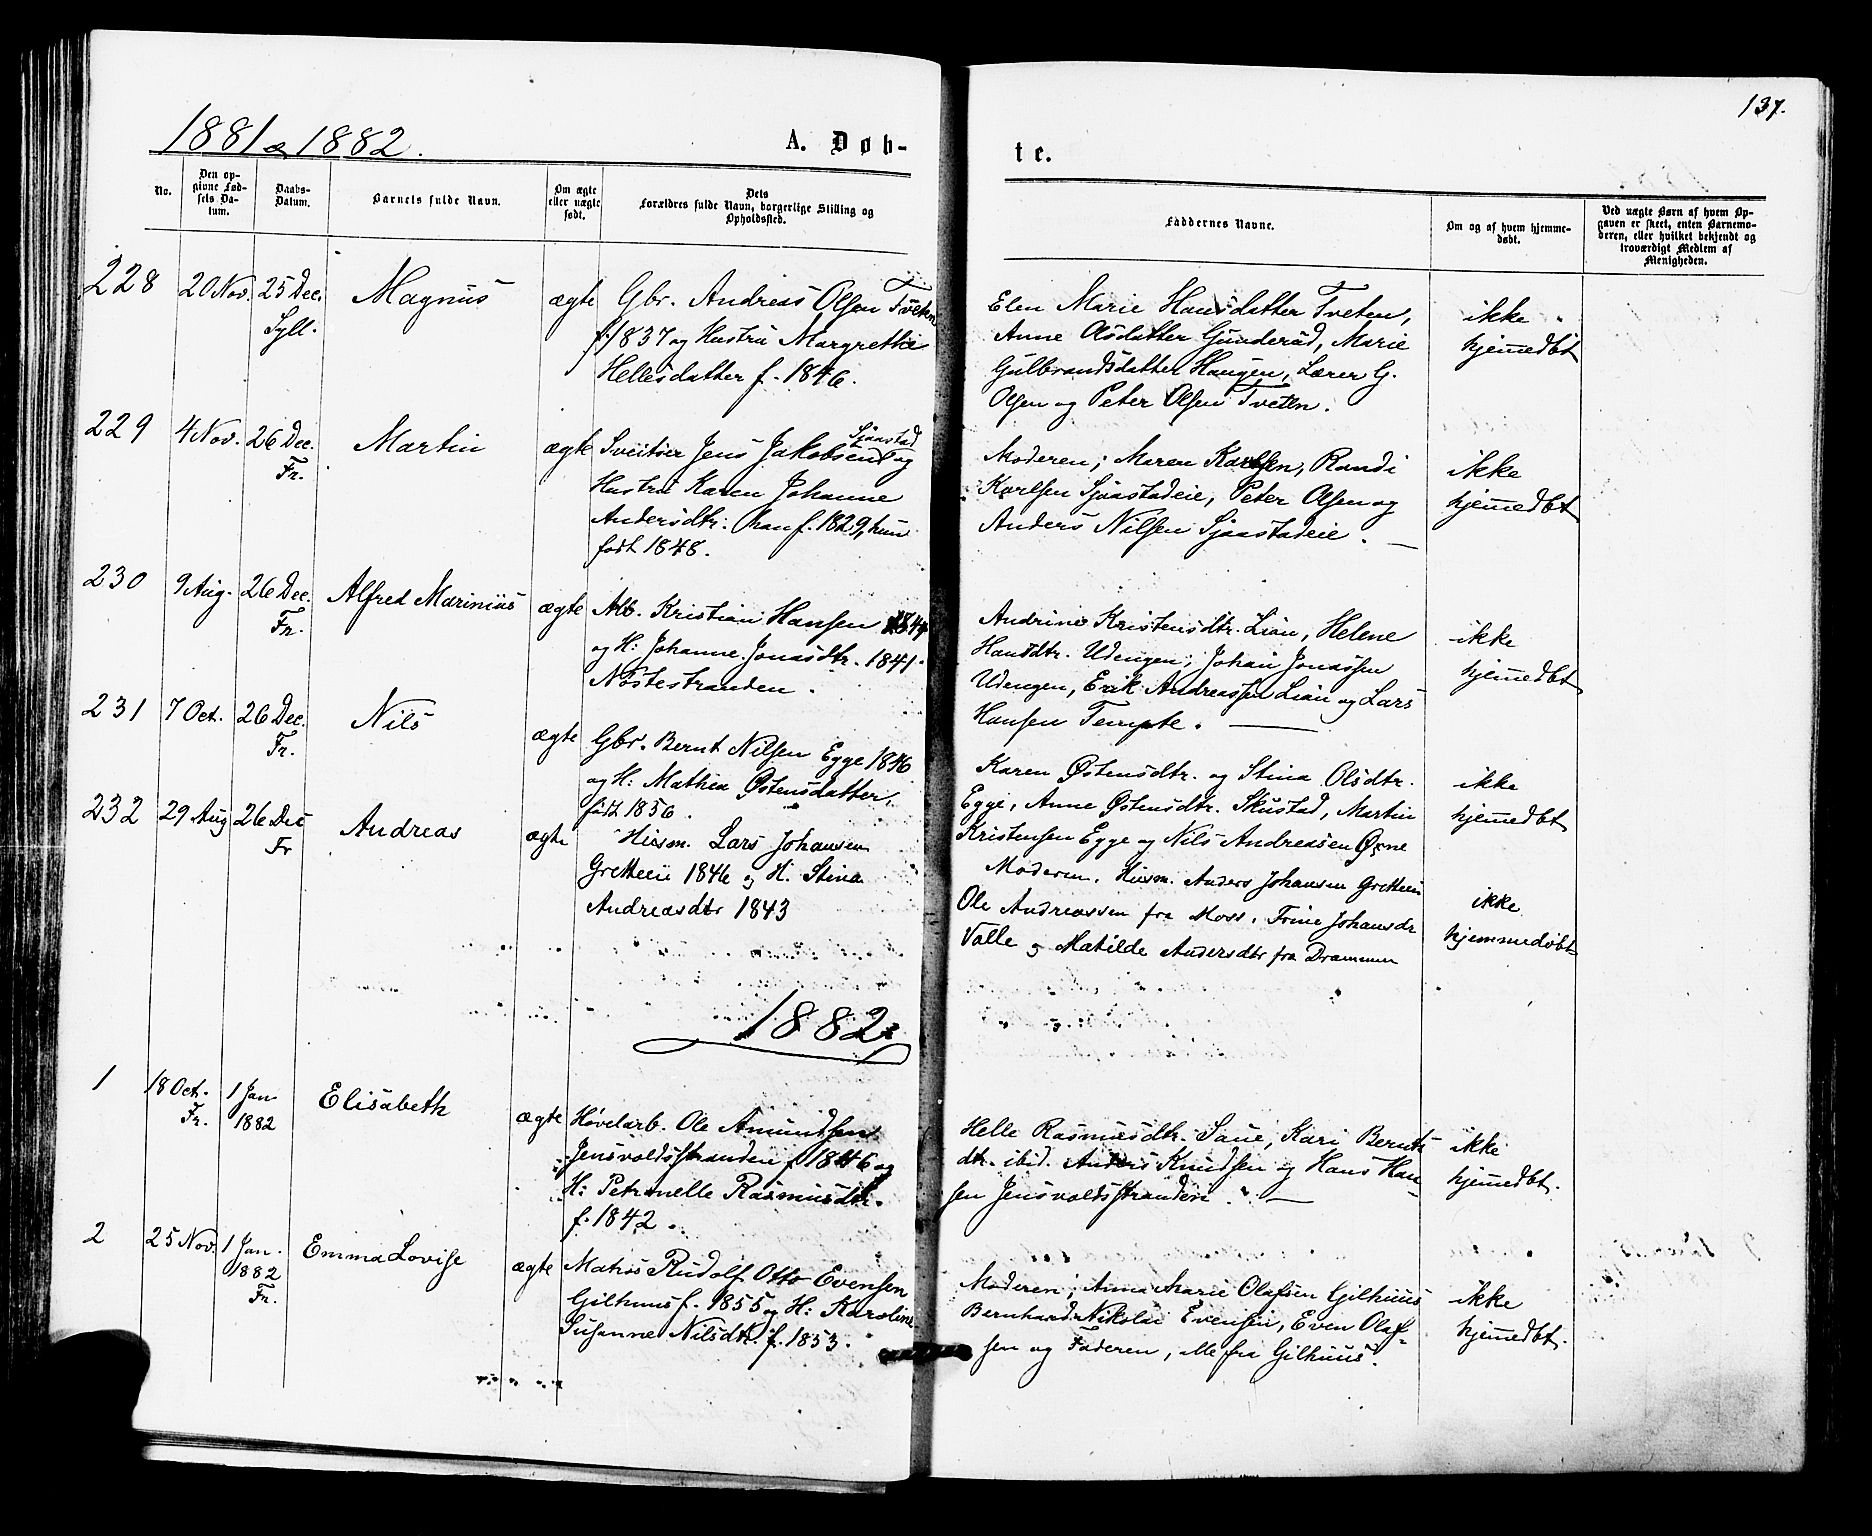 137.
1881 & 1882.
A. Døb-
te.
No.
Den op-
givne Fød-
sels Da-
tum.
Daabs-
Datum.
Barnets fulde Navn.
Om ægte
eller uægte
født.
Dets
Forældres fulde Navn, borgerlige Stilling og
Opholdssted.
Faddernes Navne.
Om og af hvem hjemme-
døbt.
Ved uægte Børn af hvem Op-
gaven er skeet, enten Barnemo-
deren, eller hvilket bekjendt og
troværdigt Medlem af
Menigheden.
228
20 Nov.
25 Dec.
Syll.
Magnus
ægte
Gbr. Andreas Olsen Tveten
f. 1837 og Hustru Margrethe
Hellesdatter f. 1846.
Elen Marie Hansdatter Tveten,
Anne Olsdatter Gunderud, Marie
Gulbrandsdatter Haugen, Lærer G.
Olsen og Peter Olsen Tveten.
ikke
hjemmedbt
229
4 Nov.
26 Dec.
Fr.
Martin
ægte
Sveitser Jens Jakobsen Sjaastad og
Hustru Karen Johanne
Andersdtr: han f. 1829, hun
født 1848.
Moderen; Maren Karlsen, Randi
Karlsen Sjaastadeie, Peter Olsen og
Anders Nilsen Sjaastadeie.
ikke
hjemmedbt
230
9 Aug.
26 Dec.
Fr.
Alfred Marinius
ægte
Arb. Kristian Hansen 1844
og H: Johanne Jonasdtr. 1841.
Nøstestranden.
Andrine Kristensdtr. Lian, Helene
Hansdtr. Udengen; Johan Jonassen
Udengen, Erik Andreassen Lian og Lars
Hansen Tempte.
ikke
hjemmedbt
231
7 Oct.
26 Dec.
Fr.
Nils
ægte
Gbr. Bernt Nilsen Egge 1846
og H: Mathea Østensdatter,
født 1856.
Karen Østensdtr. og Stina Olsdtr.
Egge, Anne Østensdtr. Skustad, Martin
Kristensen Egge og Nils Andreasen Øvne
ikke
hjemmedbt
232
29 Aug
26 Dec
Fr
Andreas
ægte
Husm. Lars Johansen
Gretteeie 1846 og H. Stina
Andreasdtr 1843
Moderen. Husm. Anders Johansen Gretteeie
Ole Andreassen fra Moss. Trine Johansdr
Valle og Matilde Andersdtr fra Drammen
ikke
hjemmedøbt
1882.
1
18 Oct.
Fr.
1 Jan
1882
Elisabeth
ægte
Høvelarb. Ole Amundsen
Jensvoldsstranden f. 1846 og
H: Petronelle Rasmusdtr.
f. 1842.
Helle Rasmusdtr. Saue, Kari Bernts
dtr. ibid. Anders Knudsen og Hans Han-
sen Jensvoldsstranden.
ikke
hjemmedbt.
2
25 Nov.
1 Jan.
1882
Fr.
Emma Lovise
ægte
Matros Rudolf Otto Evensen
Gilhuus f. 1855 og H: Karoline
Susanne Nilsdtr. f. 1853.
Moderen; Anna Marie Olafsen Gilhuus
Bernhard Nikolai Evensen, Even Olaf-
sen og Faderen, alle fra Gilhuus.
ikke
hjemmedbt.